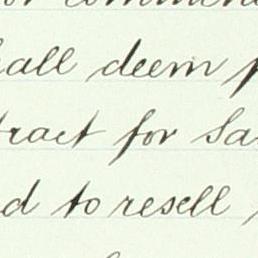 or commen
hall deem p
tract for Sa
d to resell